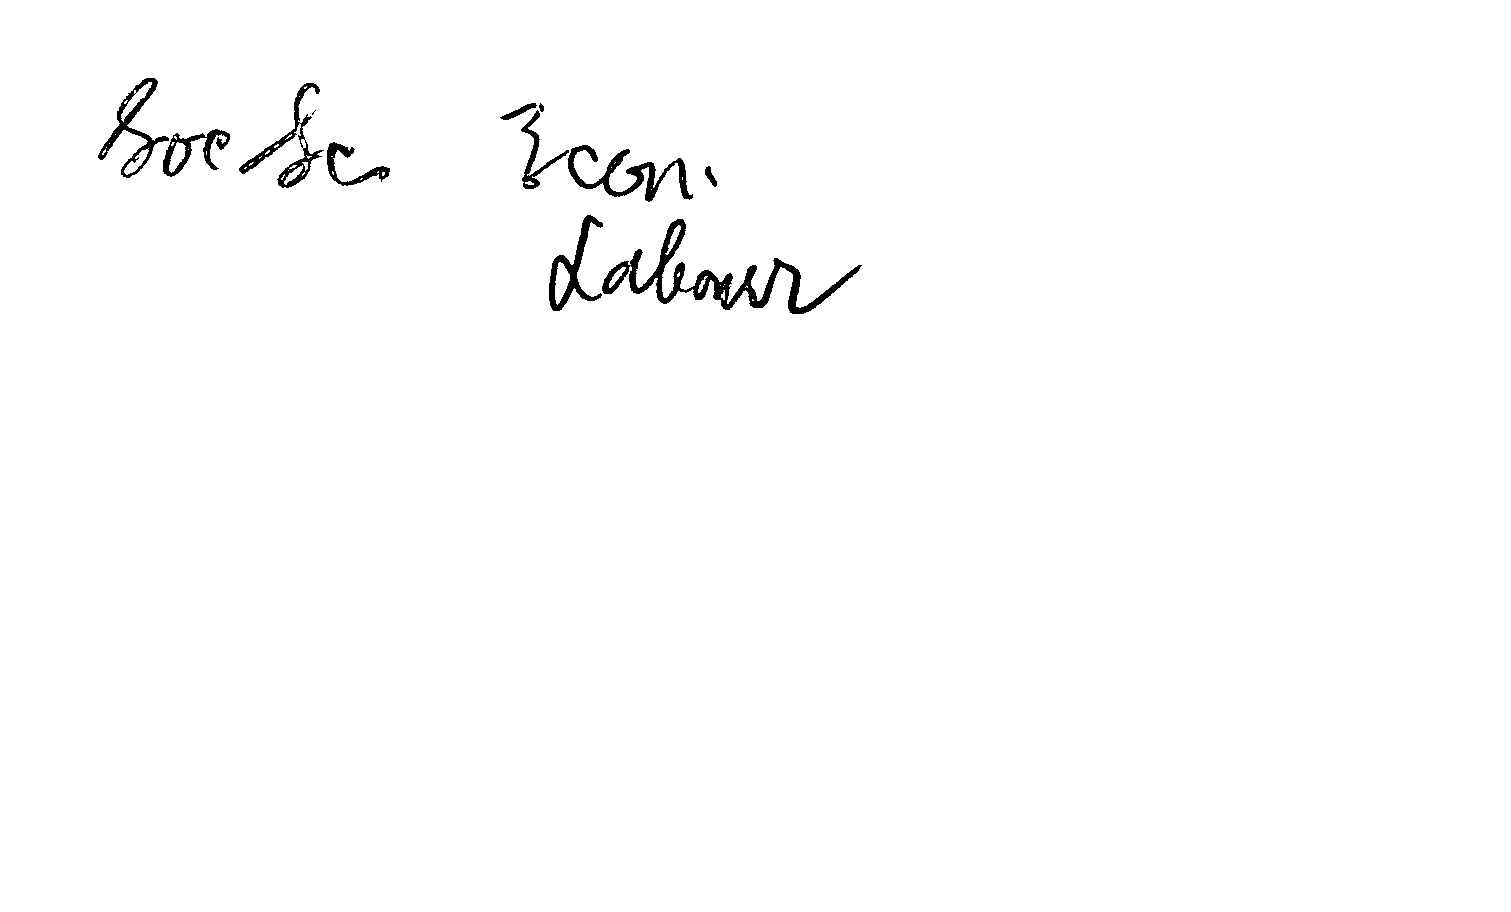 Soc Sc. Econ.
Labour